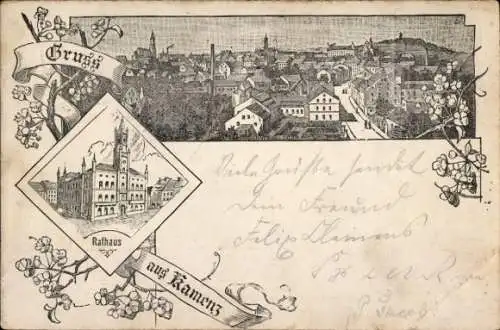 Gruss
Rathaus
aus Kamenz
Viele Grüsse sendet
Dein Freund
Felix Clemens